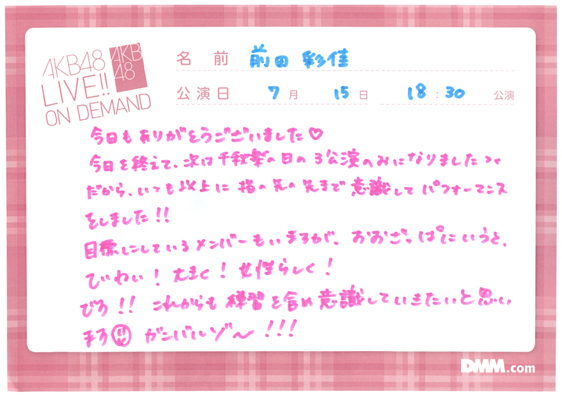 AKB48
LIVE!!
ON DEMAND
AKB
48
名前 前田 彩佳
公演日 7月 15日 18:30 公演
今日もありがとうございました♡
今日を終えて、次は千秋楽の日の3公演のみになりました><
だから、いつも以上に指の先の先まで意識してパフォーマンス
をしました!!
目標にしているメンバーもいますが、おおざっぱにいうと、
びわい!大きく!女性らしく!
びう!!これからも練習を含め意識していきたいと思い
ます ガンバルゾ〜!!!
DMM.com